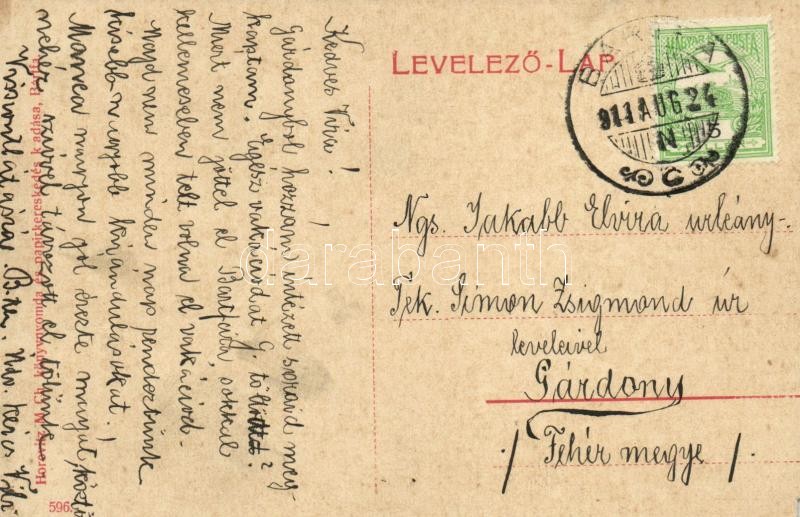 LEVELEZŐ-LAP
MAGYAR KIR. POSTA
BÁRTFA
911 AUG 24
N 3
Ngs. Jakabb Elvira urleány-
Tek. Simon Zsigmond úr
leveleivel
Gárdony
/ Fehér megye /.
Kedves Vira!
Gárdonyból hozzám intézett soraid meg-
kaptam. Egész vakációdat G. töltötted?
Miért nem jöttél el Bártfára, sokkal
kellemesebben telt volna el vakációd.
Majd nem minden nap rendeztünk
kisebb nagyobb kirándulásokat.
Manca nagyon jól érezte magát, közt
nehéz szívvel távozott el tőlünk.
Viszontlátásra B.
Horovitz M. Ch. könyvnyomda és papirkereskedés kiadása, Bártfa.
596.
darabanth